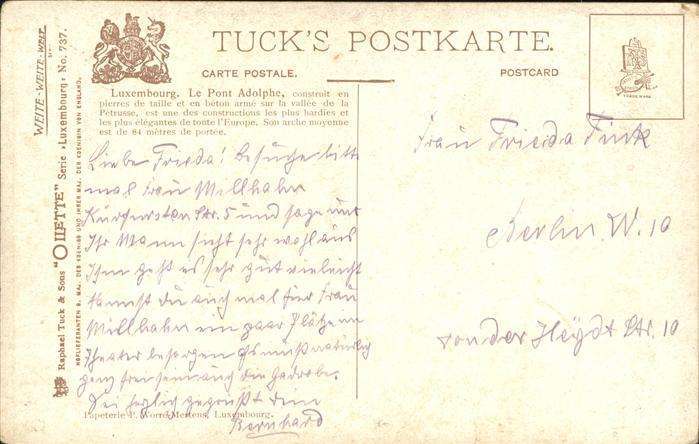 WEITE-WEITE-WELT
Raphael Tuck & Sons "OILETTE" Serie „Luxembourg“ No. 737.
HOFLIEFERANTEN S. MAJ. DES KOENIGS UND IHRER MAJ. DER KOENIGIN VON ENGLAND.
TUCK'S POSTKARTE.
CARTE POSTALE.
POSTCARD
TRADE MARK
Luxembourg. Le Pont Adolphe, construit en
pierres de taille et en béton armé sur la vallée de la
Pétrusse, est une des constructions les plus hardies et
les plus élégantes de toute l'Europe. Son arche moyenne
est de 84 mètres de portée.
Liebe Frieda! besuche bitte
mal Frau Millhahn
Kurfürsten Str. 5 und sage nur
Ihr Mann sieht sehr wohl aus
Ihm geht es sehr gut vieleicht
kannst du auch mal für Frau
Millhahn ein paar Plätze im
Theater besorgen es muß natürlich
ganz frei sein auch die Gadrobe.
Sei herzlich gegrüßt dein
Bernhard
Papeterie P. Worré-Mertens, Luxembourg.
Frau Frieda Fink
Berlin. W. 10
von der Heydt Str. 10